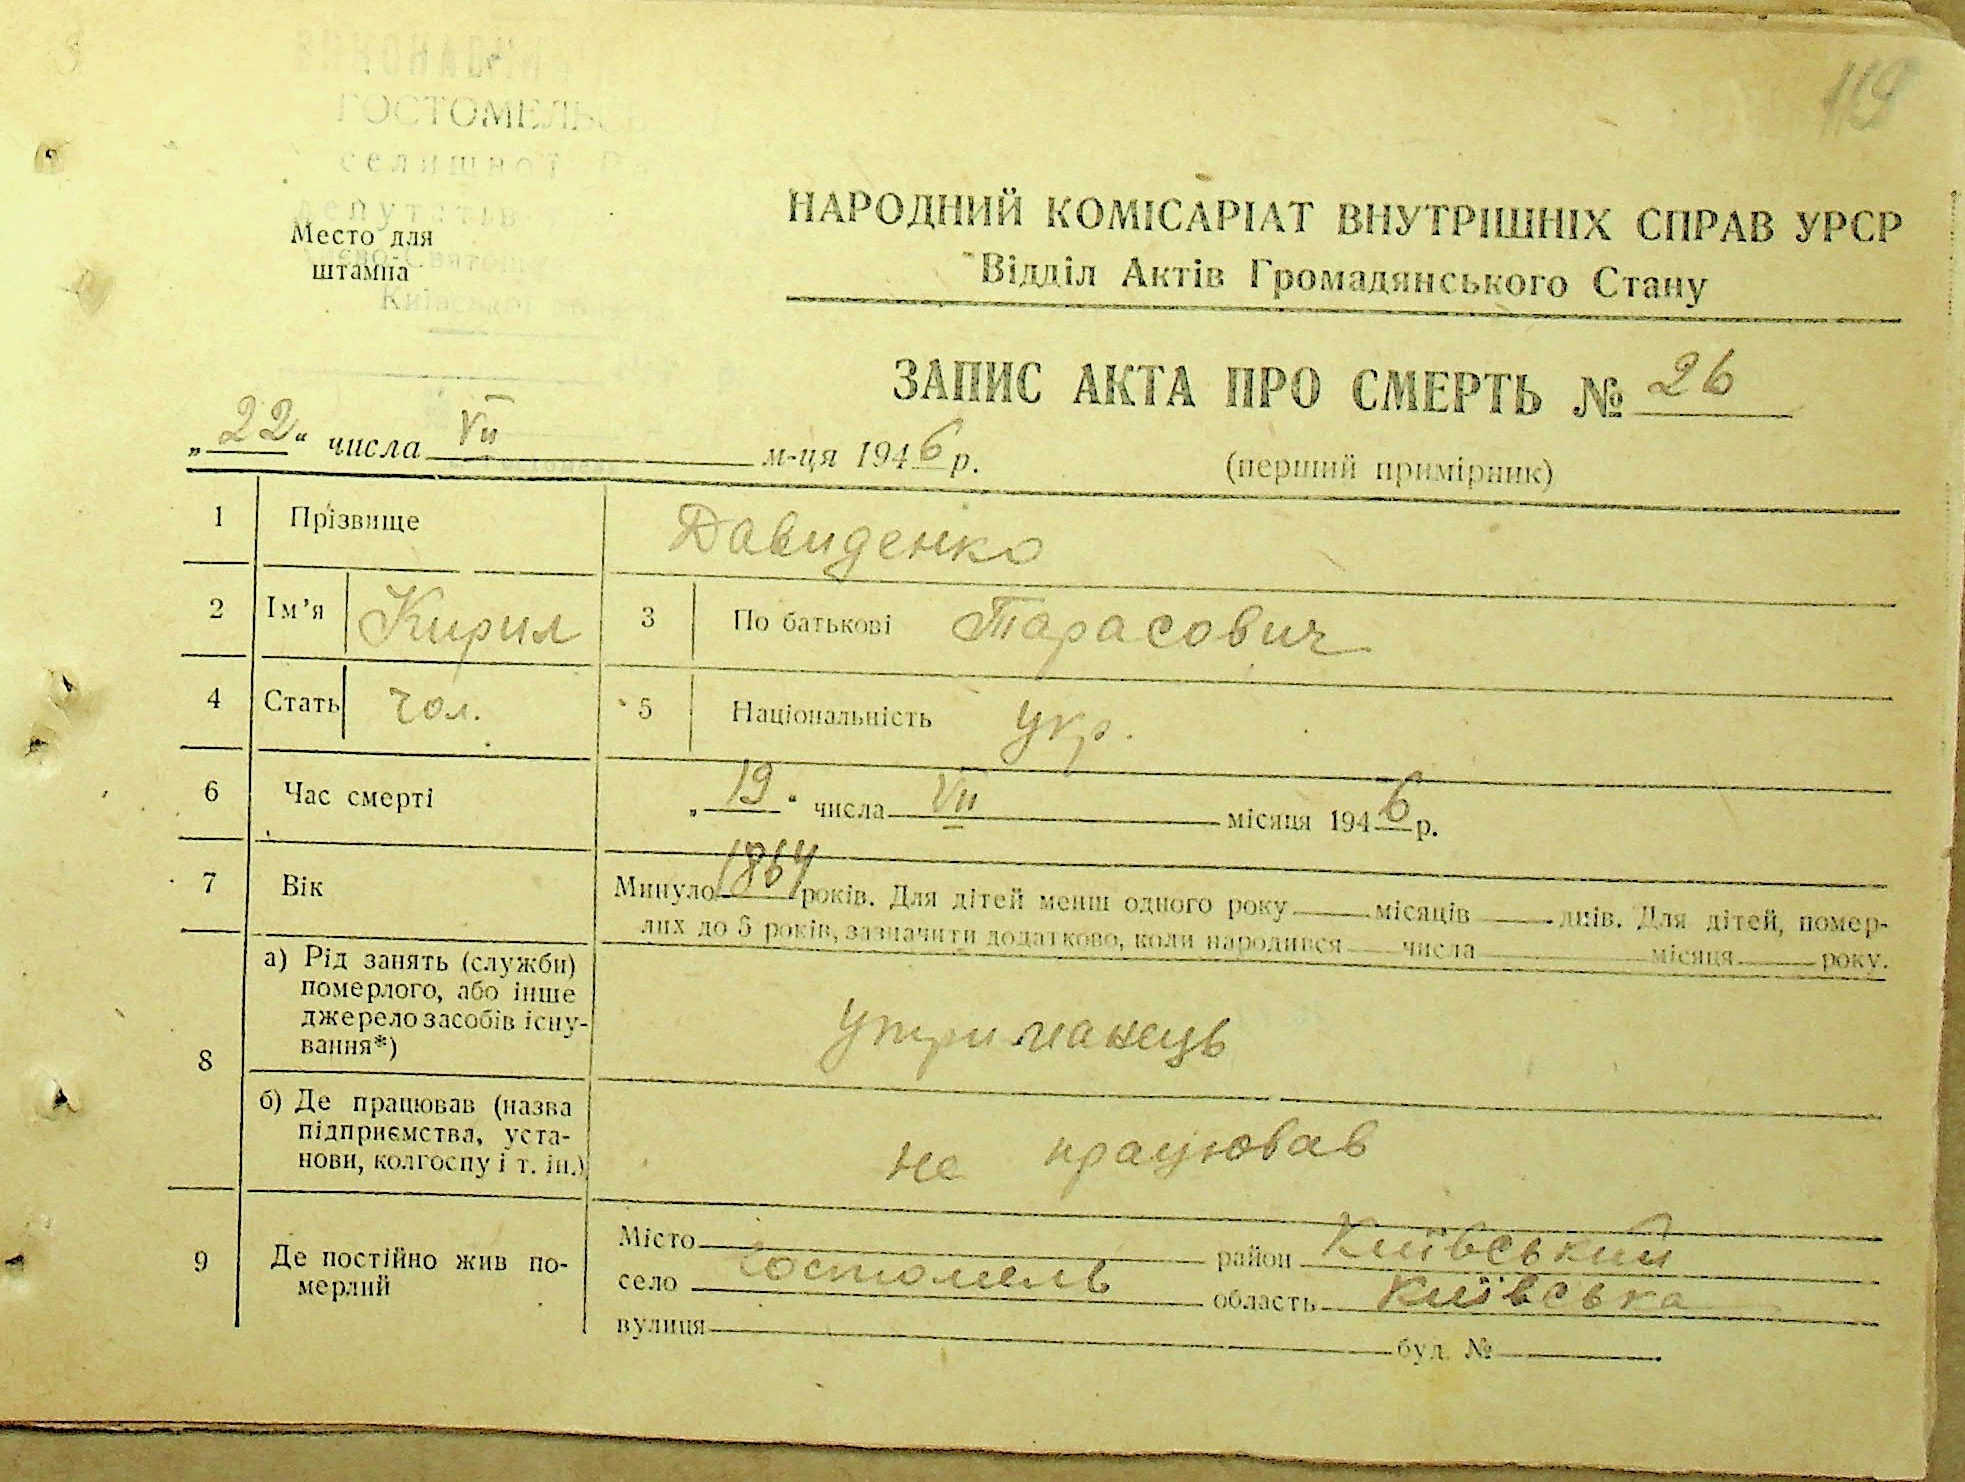 119
ГОСТОМЕЛЬС
селищної
депутатів
Место для
штампа
Київської
НАРОДНИЙ КОМІСАРІАТ ВНУТРІШНІХ СПРАВ УРСР
Відділ Актів Громадянського Стану
ЗАПИС АКТА ПРО СМЕРТЬ № 26
„22“ числа VII м-ця 1946 р.
(перший примірник)
1 Прізвище Давиденко
2 Ім'я Кирил 3 По батькові Тарасович
4 Стать чол. 5 Національність укр.
6 Час смерті „19“ числа VII місяця 1946 р.
7 Вік Минуло 1864 років. Для дітей менш одного року місяців днів. Для дітей, помер-
лих до 5 років, зазначити додатково, коли народився числа місяця року.
8 а) Рід занять (служби)
померлого, або інше
джерело засобів існу-
вання*)
утриманець
б) Де працював (назва
підприємства, уста-
нови, колгоспу і т. ін.)
не працював
9 Де постійно жив по-
мерлий
Місто район Київський
село Гостомель область Київська
вулиця буд. №